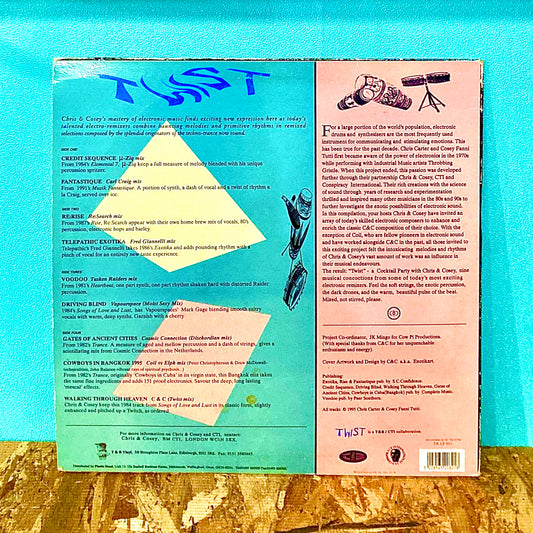 TWIST
Chris & Cosey's mastery of electronic music finds exciting new expression here as today's
talented electro-remixers combine haunting melodies and primitive rhythms in remixed
selections composed by the splendid originators of the techno-trance now sound.
SIDE ONE
CREDIT SEQUENCE µ-Ziq mix
From 1984's Elemental 7, µ-Ziq keep a full measure of melody blended with his unique
percussion spritzer.
FANTASTIQUE Carl Craig mix
From 1991's Musik Fantastique. A portion of synth, a dash of vocal and a twist of rhythm a
la Craig, served over ice.
SIDE TWO
RE:RISE Re:Search mix
From 1987's Rise, Re:Search appear with their own home brew mix of vocals, 80's
percussion, electronic hops and barley.
TELEPATHIC EXOTIKA Fred Giannelli mix
Telepathic's Fred Giannelli takes 1986's Exotika and adds pounding rhythm with a
pinch of vocal for an entirely new taste experience.
SIDE THREE
VOODOO Tusken Raiders mix
From 1981's Heartbeat, one part synth, one part rhythm shaken hard with distorted Raider
percussion.
DRIVING BLIND Vapourspace (Moist Sexy Mix)
1984's Songs of Love and Lust, has 'Vapourspaces' Mark Gage blending smooth minty
vocals with warm, deep synths. Garnish with a cherry
SIDE FOUR
GATES OF ANCIENT CITIES Cosmic Connection (Discordian mix)
From 1982's Trance. A measure of aged and mellow percussion and a dash of strings, gives a
scintillating mix from Cosmic Connection in the Netherlands.
COWBOYS IN BANGKOK 1995 Coil vs Elph mix (Peter Christopherson & Drew McDowall-
technicians, John Balance-vibrant rays of spiritual symbols).
From 1982's Trance, originally 'Cowboys in Cuba' in its virgin state, this Bangkok mix takes
the same fine ingredients and adds 151 proof electronics. Savour the deep, long lasting
'mescal' effects.
WALKING THROUGH HEAVEN C & C (Twist mix)
Chris & Cosey keep this 1984 track from Songs of Love and Lust in its classic form, slightly
enhanced and pitched up a Twitch, as ordered.
For more information on Chris & Cosey and CTI, contact:
Chris & Cosey, BM CTI, LONDON WC1N 3XX.
T & B Vinyl, 58 Broughton Place Lane, Edinburgh, EH1 3RS. Fax: 0131 5580465
For a large portion of the world's population, electronic
drums and synthesisers are the most frequently used
instrument for communicating and stimulating emotions. This
has been true for the past decade. Chris Carter and Cosey Fanni
Tutti first became aware of the power of electronics in the 1970s
while performing with Industrial Music artists Throbbing
Gristle. When this project ended, this passion was developed
further through their partnership Chris & Cosey, CTI and
Conspiracy International. Their rich creations with the science
of sound through years of research and experimentation
thrilled and inspired many other musicians in the 80s and 90s to
further investigate the exotic possibilities of electronic sound.
In this compilation, your hosts Chris & Cosey have invited an
array of today's most skilled electronic composers to enhance and
enrich the classic C&C composition of their choice. With the
exception of Coil, who are fellow pioneers in electronic sound
and have worked alongside C&C in the past, all those invited to
this exciting project felt the intoxicating melodies and rhythms
of Chris & Cosey's vast amount of work was an influence in
their musical endeavours.
The result: "Twist" - a Cocktail Party with Chris & Cosey, nine
musical concoctions from some of today's most exciting
electronic remixers. Feel the soft strings, the exotic percussion,
the dark drones, and the warm, beautiful pulse of the beat.
Mixed, not stirred, please.
Project Co-ordinator, JK Mingo for Cow Pi Productions.
(With special thanks from C&C for her unquenchable
enthusiasm and energy).
Cover Artwork and Design by C&C a.k.a. Exotikart.
Publishing
Exotika, Rise & Fantastique pub. by S.C.Confidence.
Credit Sequence, Driving Blind, Walking Through Heaven, Gates of
Ancient Cities, Cowboys in Cuba(Bangkok) pub. by Complete Music.
Voodoo pub. by Peer Southern.
All tracks © 1995 Chris Carter & Cosey Fanni Tutti.
TWIST is a T&B / CTI collaboration.